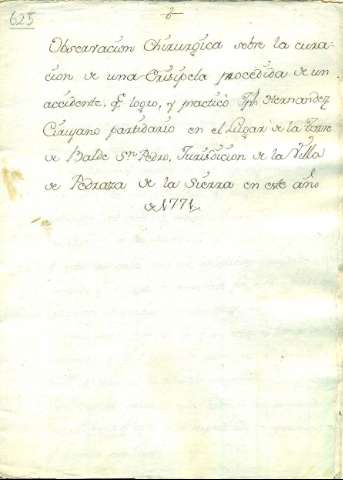 625
Observacion Chirurgica sobre la cura-
cion de una Erisipela procedida de un
accidente, q̃ logrò, y practicò Jph. Hernandez
Cirujano partidario en el Lugar de la Torre
de Balde Sn. Pedro, Jurisdicion de la Villa
de Pedraza de la Sierra en este año
de 1771.